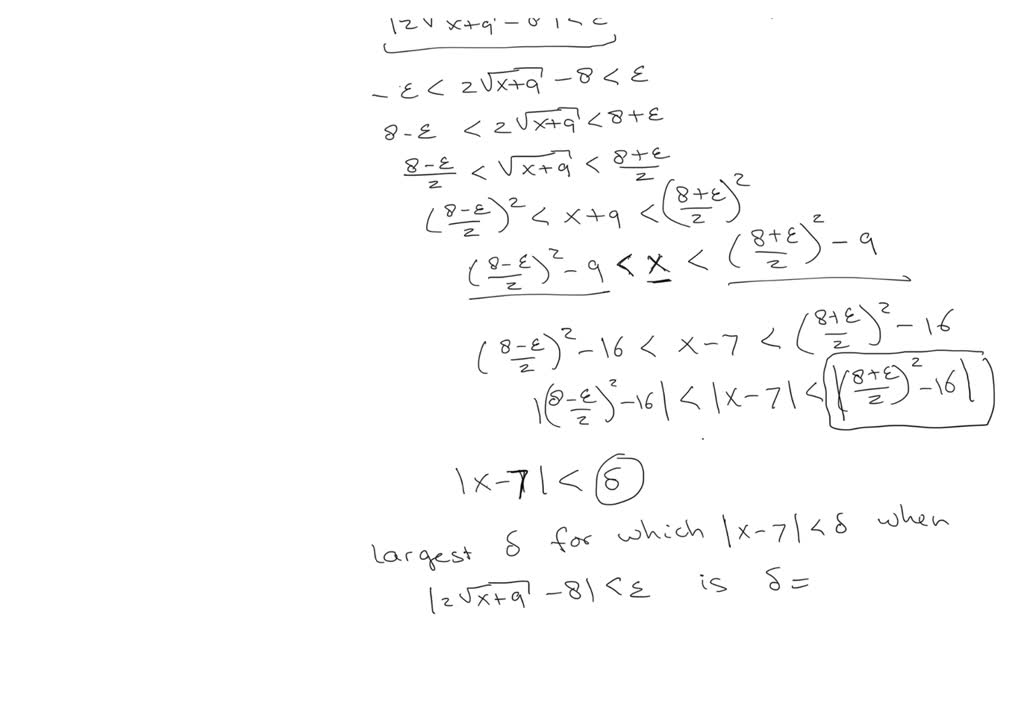 |2√x+9 - 8| < ε
-ε < 2√x+9 - 8 < ε
8-ε < 2√x+9 < 8+ε
8-ε/2 < √x+9 < 8+ε/2
(8-ε/2)² < x+9 < (8+ε/2)²
(8-ε/2)² - 9 < x < (8+ε/2)² - 9
(8-ε/2)² - 16 < x-7 < (8+ε/2)² - 16
|(8-ε/2)² - 16| < |x-7| < |(8+ε/2)² - 16|
|x-7| < δ
largest δ for which |x-7| < δ when
|2√x+9 - 8| < ε is δ =